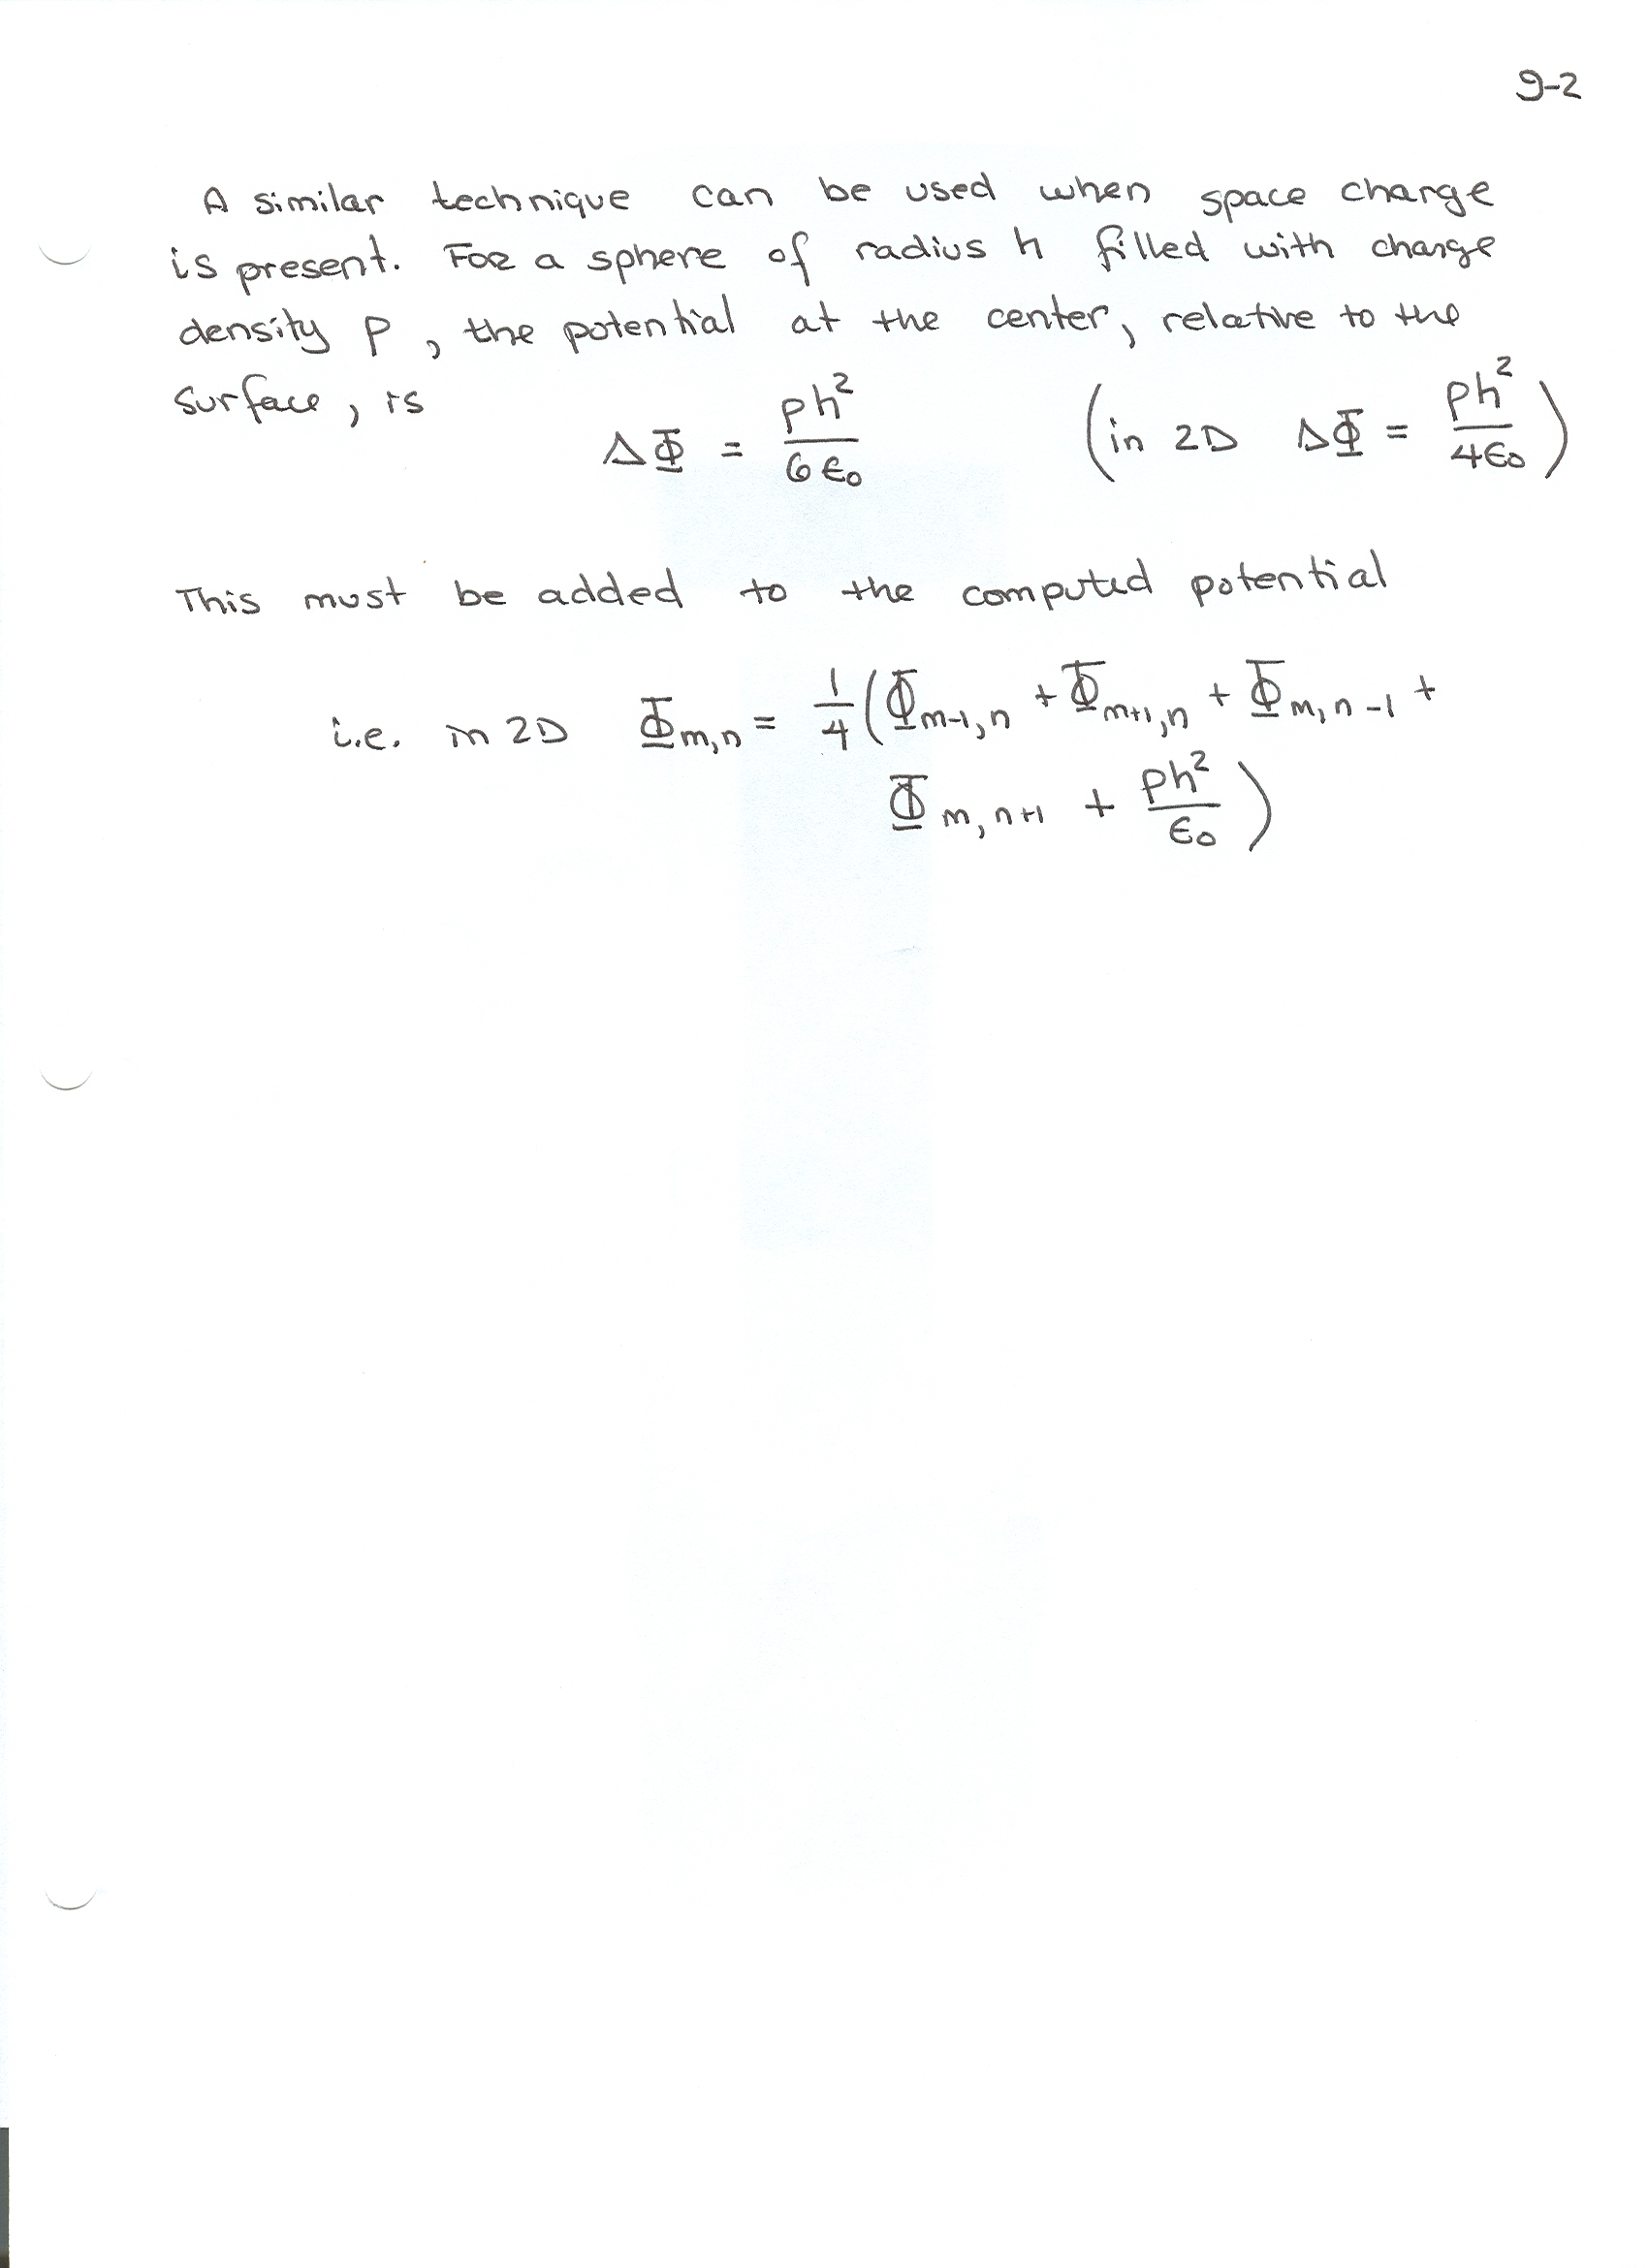 9-2
A similar technique can be used when space charge
is present. For a sphere of radius h filled with charge
density ρ, the potential at the center, relative to the
surface, is
ΔΦ = ρh²/6ε₀ (in 2D ΔΦ = ρh²/4ε₀)
This must be added to the computed potential
i.e. in 2D Φm,n = 1/4 (Φm-1,n + Φm+1,n + Φm,n-1 +
Φm,n+1 + ρh²/ε₀)